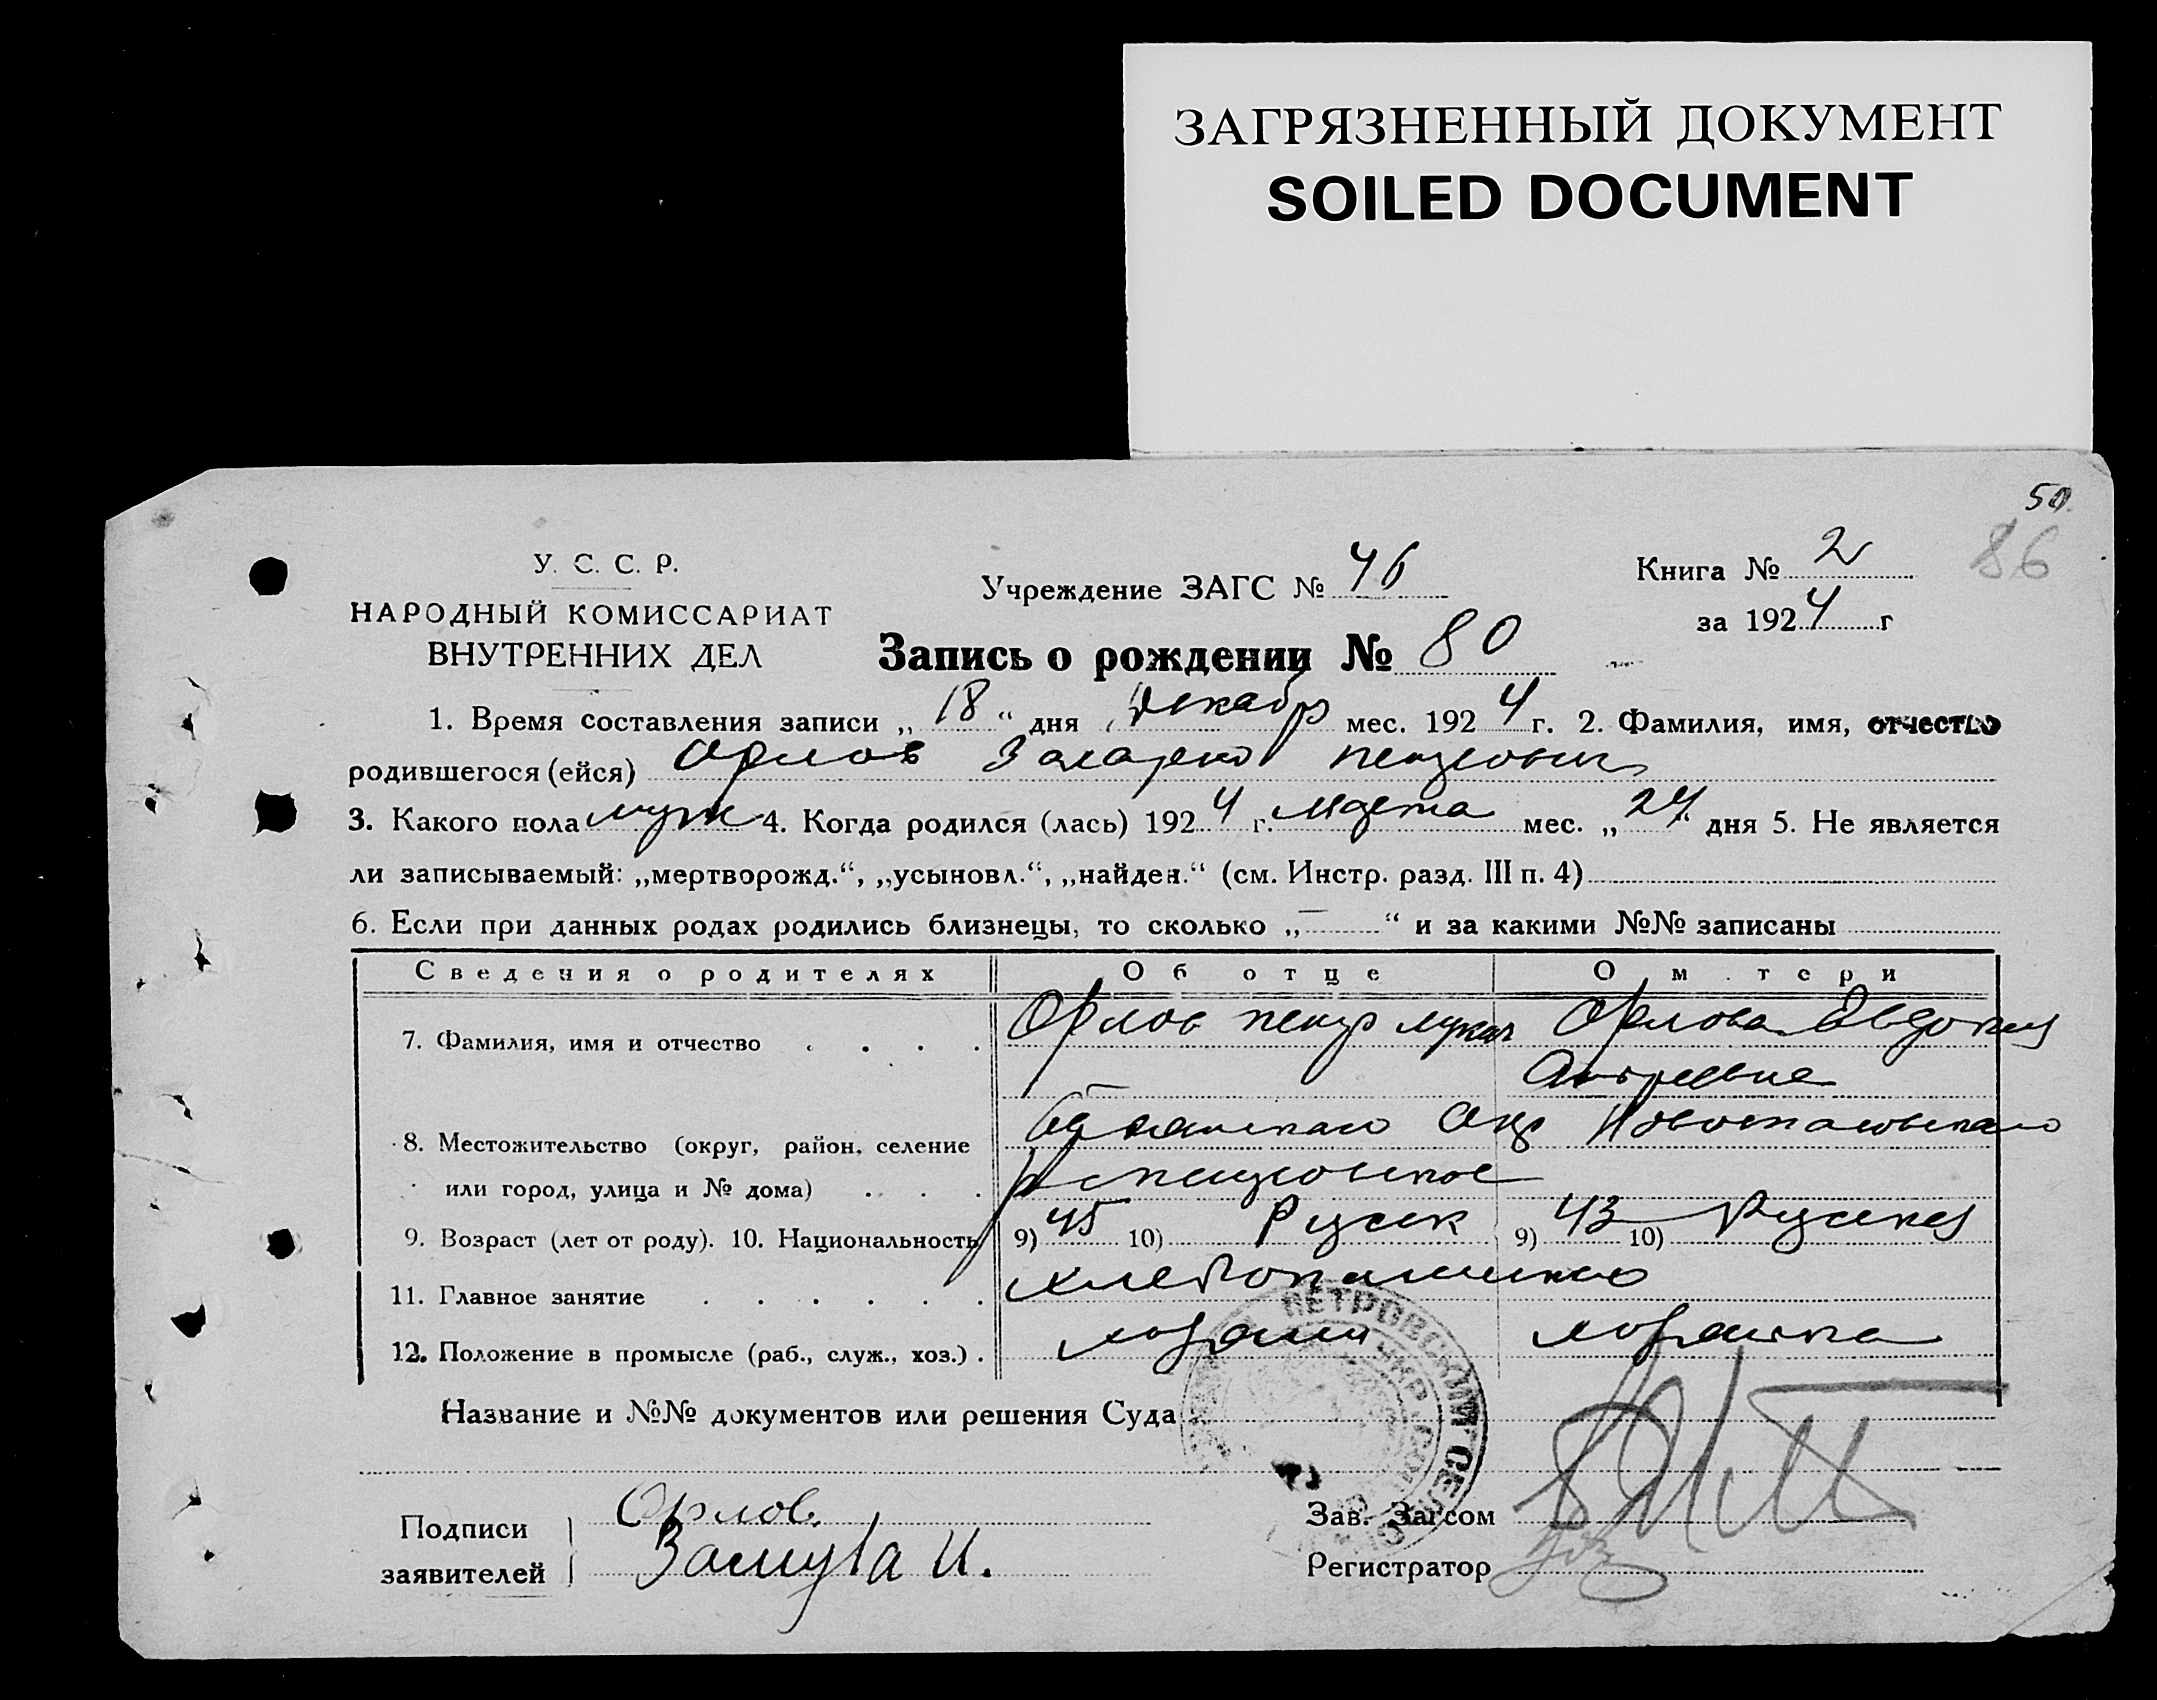 ЗАГРЯЗНЕННЫЙ ДОКУМЕНТ
SOILED DOCUMENT
50
86
У. С. С. Р.
НАРОДНЫЙ КОМИССАРИАТ
ВНУТРЕННИХ ДЕЛ
Учреждение ЗАГС № 46
Книга № 2
за 1924 г
Запись о рождении № 80
1. Время составления записи „ 18 “ дня Декабр мес. 1924 г. 2. Фамилия, имя, отчество
родившегося (ейся) Орлов Петрович
3. Какого пола муж 4. Когда родился (лась) 1924 г. Марта мес. „ 24 “ дня 5. Не является
ли записываемый: „мертворожд.“, „усыновл.“, „найден.“ (см. Инстр. разд. III п. 4)
6. Если при данных родах родились близнецы, то сколько „ — “ и за какими №№ записаны
Сведения о родителях Об отце О м тери
7. Фамилия, имя и отчество Орлов Петр Лукич Орлова Евдокия
Андреевна
8. Местожительство (округ, район, селение
или город, улица и № дома)
9. Возраст (лет от роду). 10. Национальность 9) 45 10) Руск 9) 43 10) Руская
11. Главное занятие хлебопашество
12. Положение в промысле (раб., служ., хоз.) хозяин хозяйка
Название и №№ документов или решения Суда
ПЕТРОВСКИЙ СЕЛ
Подписи
заявителей
Орлов.
Зав. Загсом
Регистратор